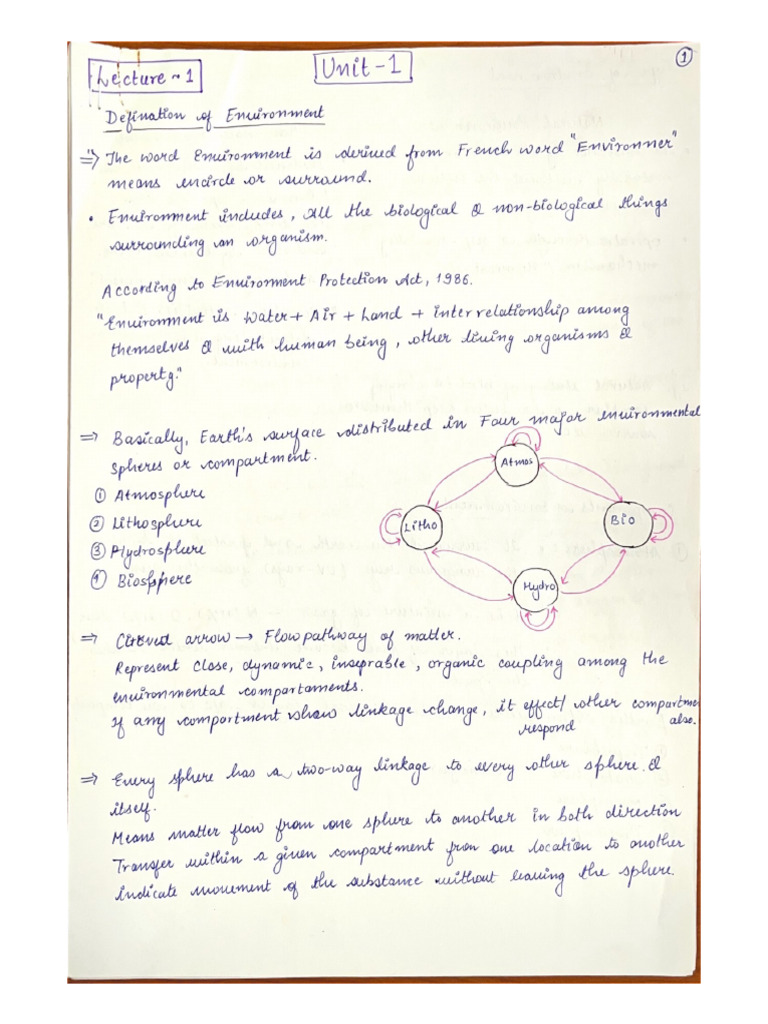 Lecture-1
Unit-1
1
Defination of Environment
⇒ The word Environment is derived from French word "Environner"
means encircle or surround.
• Environment includes, all the biological & non-biological things
surrounding an organism.
According to Enviorment Protection Act, 1986.
"Environment is Water + Air + Land + inter relationship among
themselves & with human being, other living organisms &
property."
⇒ Basically, Earth's surface distributed in Four major environmental
spheres or compartment.
① Atmosphere
② Lithosphere
③ Hydrosphere
④ Biosphere
Atmos
Litho
Bio
Hydro
⇒ Curved arrow → Flow pathway of matter.
Represent close, dynamic, inseprable, organic coupling among the
environmental compartaments.
If any compartment show linkage change, it effect/ other compartment
respond also.
⇒ Every sphere has a two-way linkage to every other sphere &
itself.
Means matter flow from one sphere to another in both direction
Transfer within a given compartment from one location to another
indicate movement of the substance without leaving the sphere.